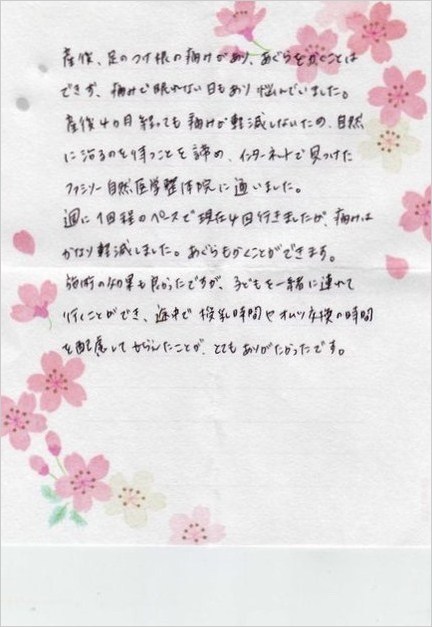 産後、足のつけ根の痛みがあり、あぐらをかくことは
できず、痛みで眠れない日もあり悩んでいました。
産後4ヵ月経っても痛みが軽減しないため、自然
に治るのを待つことを諦め、インターネットで見つけた
ファミリー自然医学整体院に通いました。
週に1回程のペースで現在4回行きましたが、痛みは
かなり軽減しました。あぐらもかくことができます。
施術の効果も良かったですが、子どもを一緒に連れて
行くことができ、途中で授乳時間やオムツ交換の時間
を配慮してもらえたことが、とてもありがたかったです。